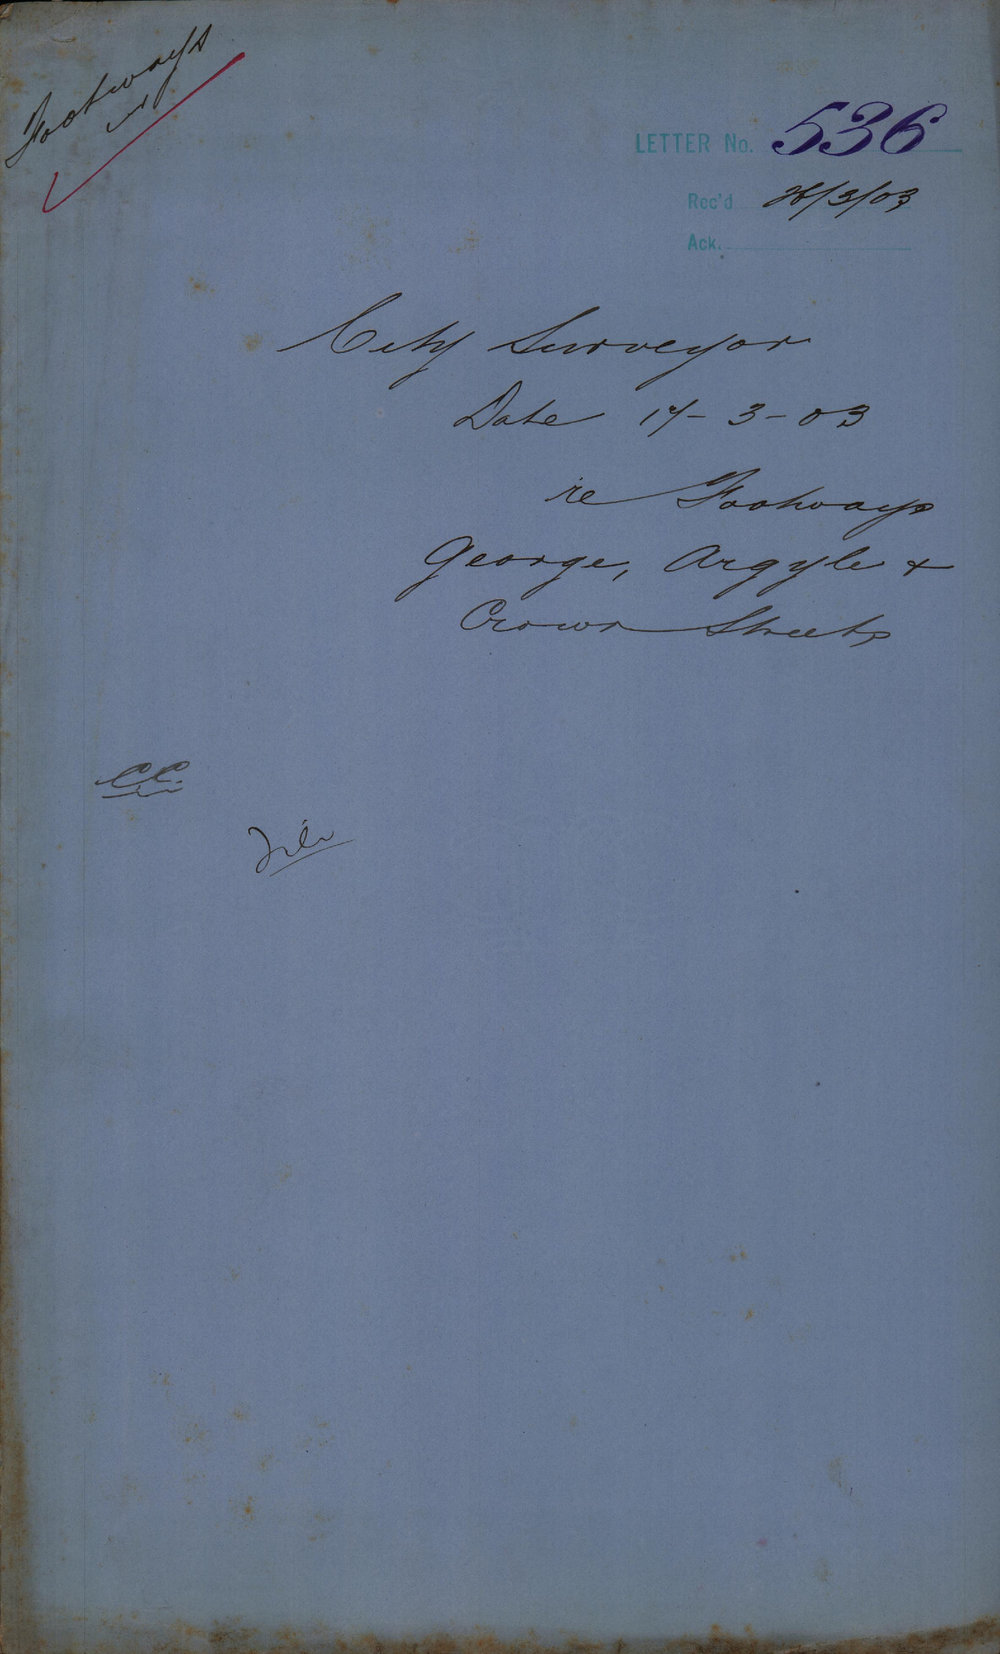 Footways
LETTER No. 536
Rec'd 26/3/03
Ack.
City Surveyor
Date 17-3-03
re Footways
George, Argyle &
Crown Streets
CC.
File